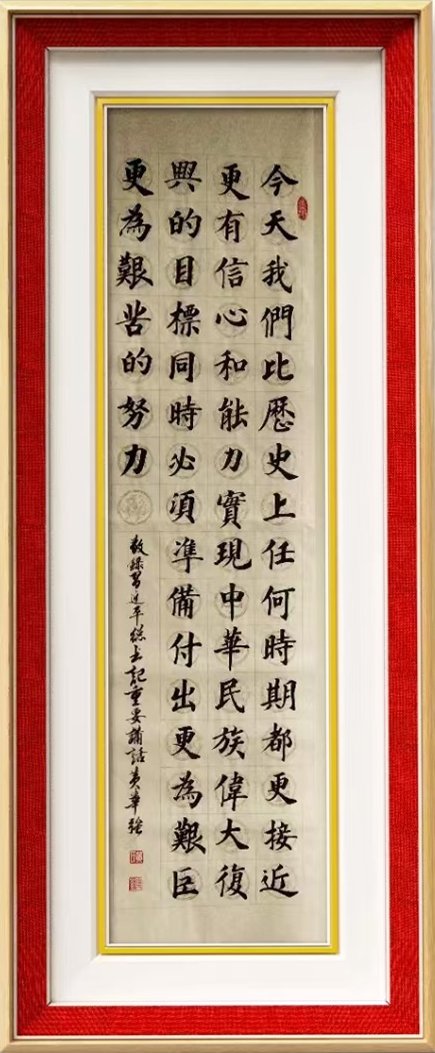 今天我們比歷史上任何時期都更接近
更有信心和能力實現中華民族偉大復
興的目標同時必須準備付出更為艱巨
更為艱苦的努力
敬錄習近平總書記重要講話